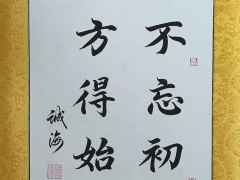 不忘初
方得始
诚海